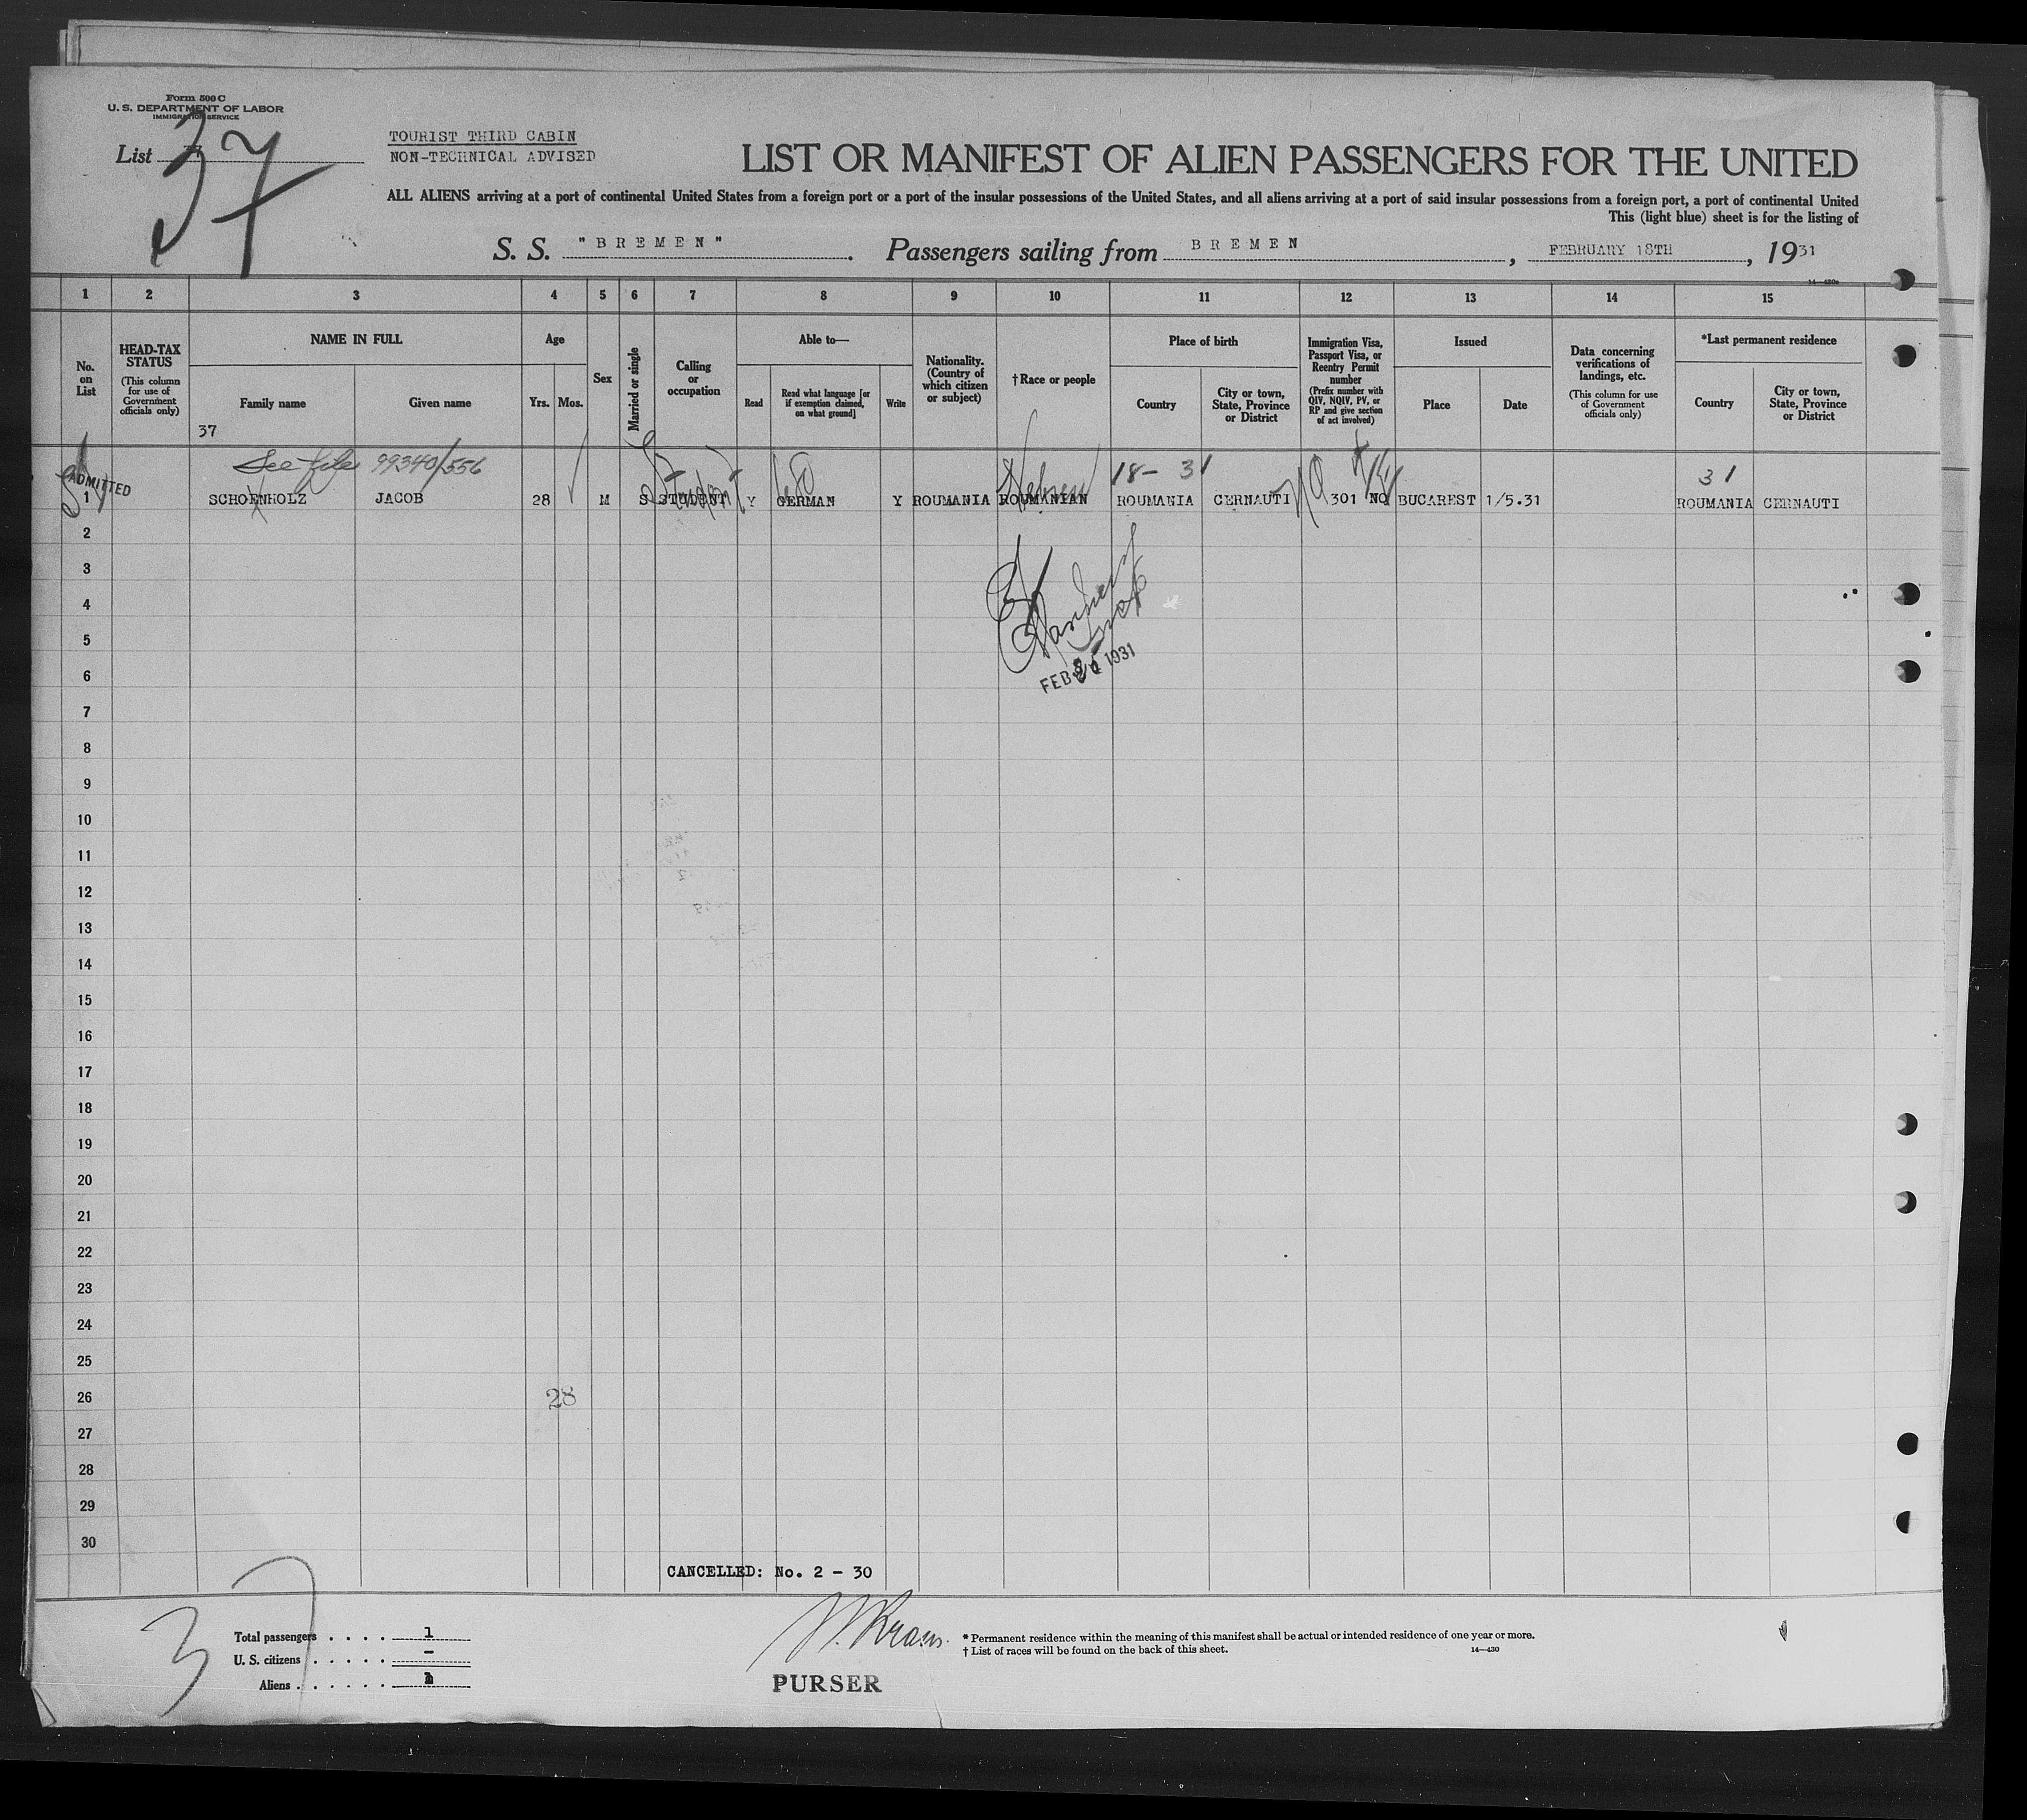 Form 500 C
U. S. DEPARTMENT OF LABOR
IMMIGRATION SERVICE
List 37
TOURIST THIRD CABIN
NON-TECHNICAL ADVISED
LIST OR MANIFEST OF ALIEN PASSENGERS FOR THE UNITED
ALL ALIENS arriving at a port of continental United States from a foreign port or a port of the insular possessions of the United States, and all aliens arriving at a port of said insular possessions from a foreign port, a port of continental United
This (light blue) sheet is for the listing of
S. S. "BREMEN". Passengers sailing from BREMEN, FEBRUARY 18TH, 1931
1 2 3 4 5 6 7 8 9 10 11 12 13 14 15
No. on List
HEAD-TAX STATUS (This column for use of Government officials only)
NAME IN FULL
Family name
Given name
37
Age
Yrs. Mos.
Sex
Married or single
Calling or occupation
Able to—
Read
Read what language [or if exemption claimed, on what ground]
Write
Nationality. (Country of which citizen or subject)
†Race or people
Place of birth
Country
City or town, State, Province or District
Immigration Visa, Passport Visa, or Reentry Permit number (Prefix number with QIV, NQIV, PV, or RP and give section of act involved)
Issued
Place
Date
Data concerning verifications of landings, etc. (This column for use of Government officials only)
*Last permanent residence
Country
City or town, State, Province or District
See file 99340/556 18- 31 31
ADMITTED
1 SCHOENHOLZ JACOB 28 M S STUDENT Y GERMAN Y ROUMANIA ROUMANIAN Hebrew ROUMANIA CERNAUTI 301 NQ BUCAREST 1/5.31 ROUMANIA CERNAUTI
2
3
4
5
6
FEB 1931
7
8
9
10
11
12
13
14
15
16
17
18
19
20
21
22
23
24
25
26 28
27
28
29
30
CANCELLED: No. 2 - 30
37
Total passengers . . . . 1
U. S. citizens . . . . . -
Aliens . . . . . .
PURSER
* Permanent residence within the meaning of this manifest shall be actual or intended residence of one year or more.
† List of races will be found on the back of this sheet. 14—430